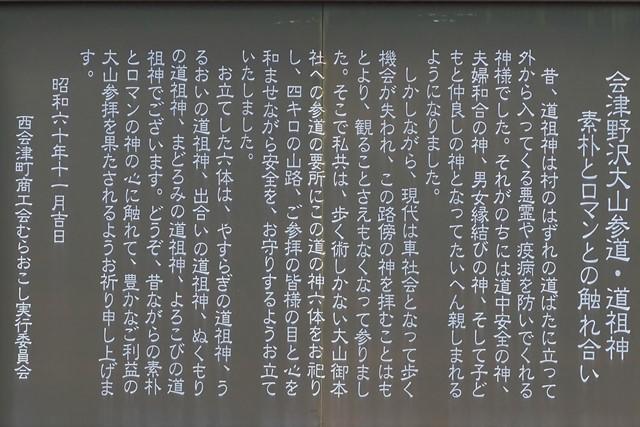 会津野沢大山参道・道祖神
素朴とロマンとの触れ合い
昔、道祖神は村のはずれの道ばたに立って
外から入ってくる悪霊や疫病を防いでくれる
神様でした。それがのちには道中安全の神、
夫婦和合の神、男女縁結びの神、そして子ど
もと仲良しの神となってたいへん親しまれる
ようになりました。
しかしながら、現代は車社会となって歩く
機会が失われ、この路傍の神を拝むことはも
とより、観ることさえもなくなって参りまし
た。そこで私共は、歩く術しかない大山御本
社への参道の要所にこの道の神六体をお祀り
し、四キロの山路、ご参拝の皆様の目と心を
和ませながら安全を、お守りするようお立て
いたしました。
お立てした六体は、やすらぎの道祖神、う
るおいの道祖神、出合いの道祖神、ぬくもり
の道祖神、まどろみの道祖神、よろこびの道
祖神でございます。どうぞ、昔ながらの素朴
とロマンの神の心に触れて、豊かなご利益の
大山参拝を果たされるようお祈り申し上げま
す。
昭和六十年十一月吉日
西会津町商工会むらおこし実行委員会